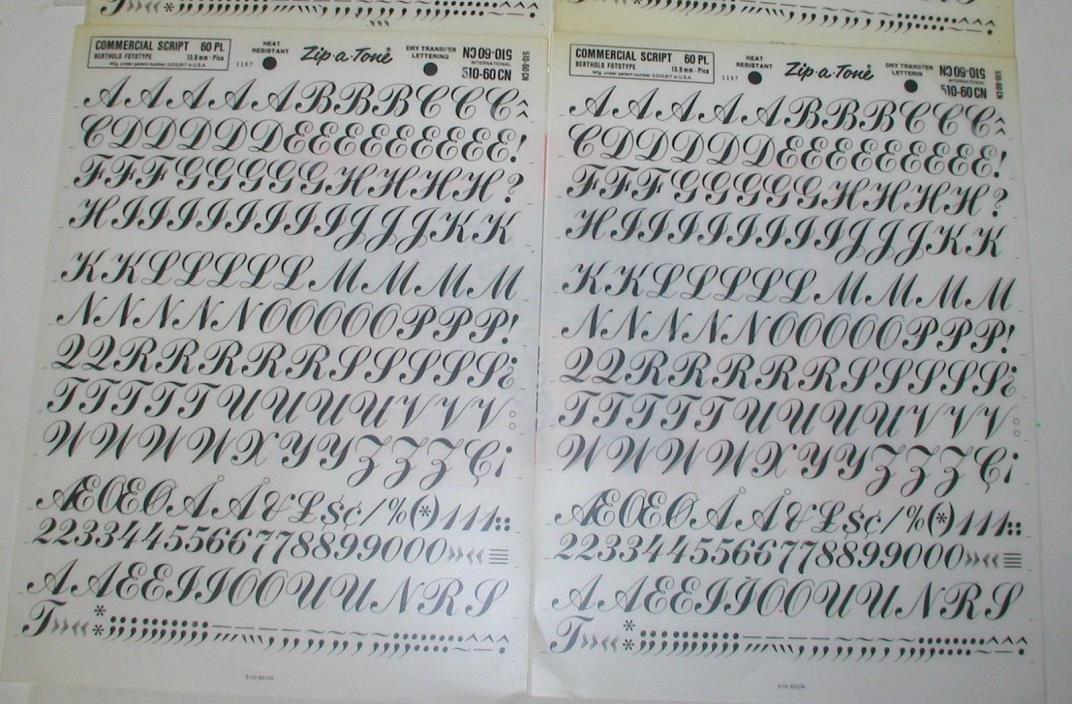 COMMERCIAL SCRIPT 60 Pt.
BERTHOLD FOTOTYPE 13.9 mm - Pica
Mfg. under patent number 3,013,917 in U.S.A.
1197
HEAT RESISTANT
Zip-a-Tone®
DRY TRANSFER LETTERING
510-60 CN
INTERNATIONAL
510-60 CN
510-60 CN
AAAAABBBCCC^
CDDDDDEEEEEEEEE!
FFFGGGGGHHHH?
HIIIIIIIIJJJKK
KKLLLLLMMMMM
NNNNNOOOOOPPP!
QQRRRRRSSSSS¿
TTTTTUUUUVVV
WWWWXYYZZZÇ¡
ÆŒØÅÅ&£$¢/%(*)111::
2233445566778899000»»««
AAEEIIOOUUNRS
T»»««
510-60CN
COMMERCIAL SCRIPT 60 Pt.
BERTHOLD FOTOTYPE 13.9 mm - Pica
Mfg. under patent number 3,013,917 in U.S.A.
1197
HEAT RESISTANT
Zip-a-Tone®
DRY TRANSFER LETTERIN
510-60 CN
INTERNATIONAL
510-60 CN
510-60 CN
AAAAABBBCCC^
CDDDDDEEEEEEEEE!
FFFGGGGGHHHH?
HIIIIIIIIJJJKK
KKLLLLLMMMMM
NNNNNOOOOOPPP!
QQRRRRRSSSSS¿
TTTTTUUUUVVV
WWWWXYYZZZÇ¡
ÆŒØÅÅ&£$¢/%(*)111::
2233445566778899000»»««
AAEEIIOOUUNRS
T»»««
510-60CN